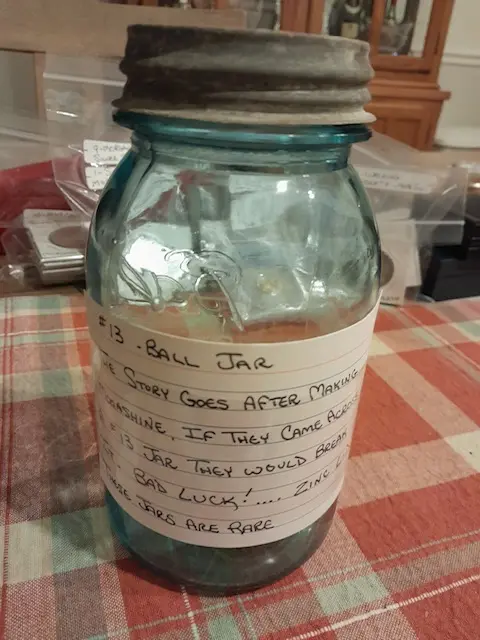 #13 - BALL JAR
HE STORY GOES AFTER MAKING
OONSHINE, IF THEY CAME ACROSS
#13 JAR THEY WOULD BREAK
BAD LUCK!.... ZINC L
HESE JARS ARE RARE